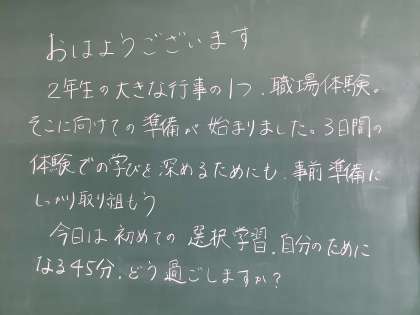 おはようございます
2年生の大きな行事の1つ、職場体験。
そこに向けての準備が始まりました。3日間の
体験での学びを深めるためにも、事前準備に
しっかり取り組もう
今日は初めての選択学習、自分のために
なる45分、どう過ごしますか?